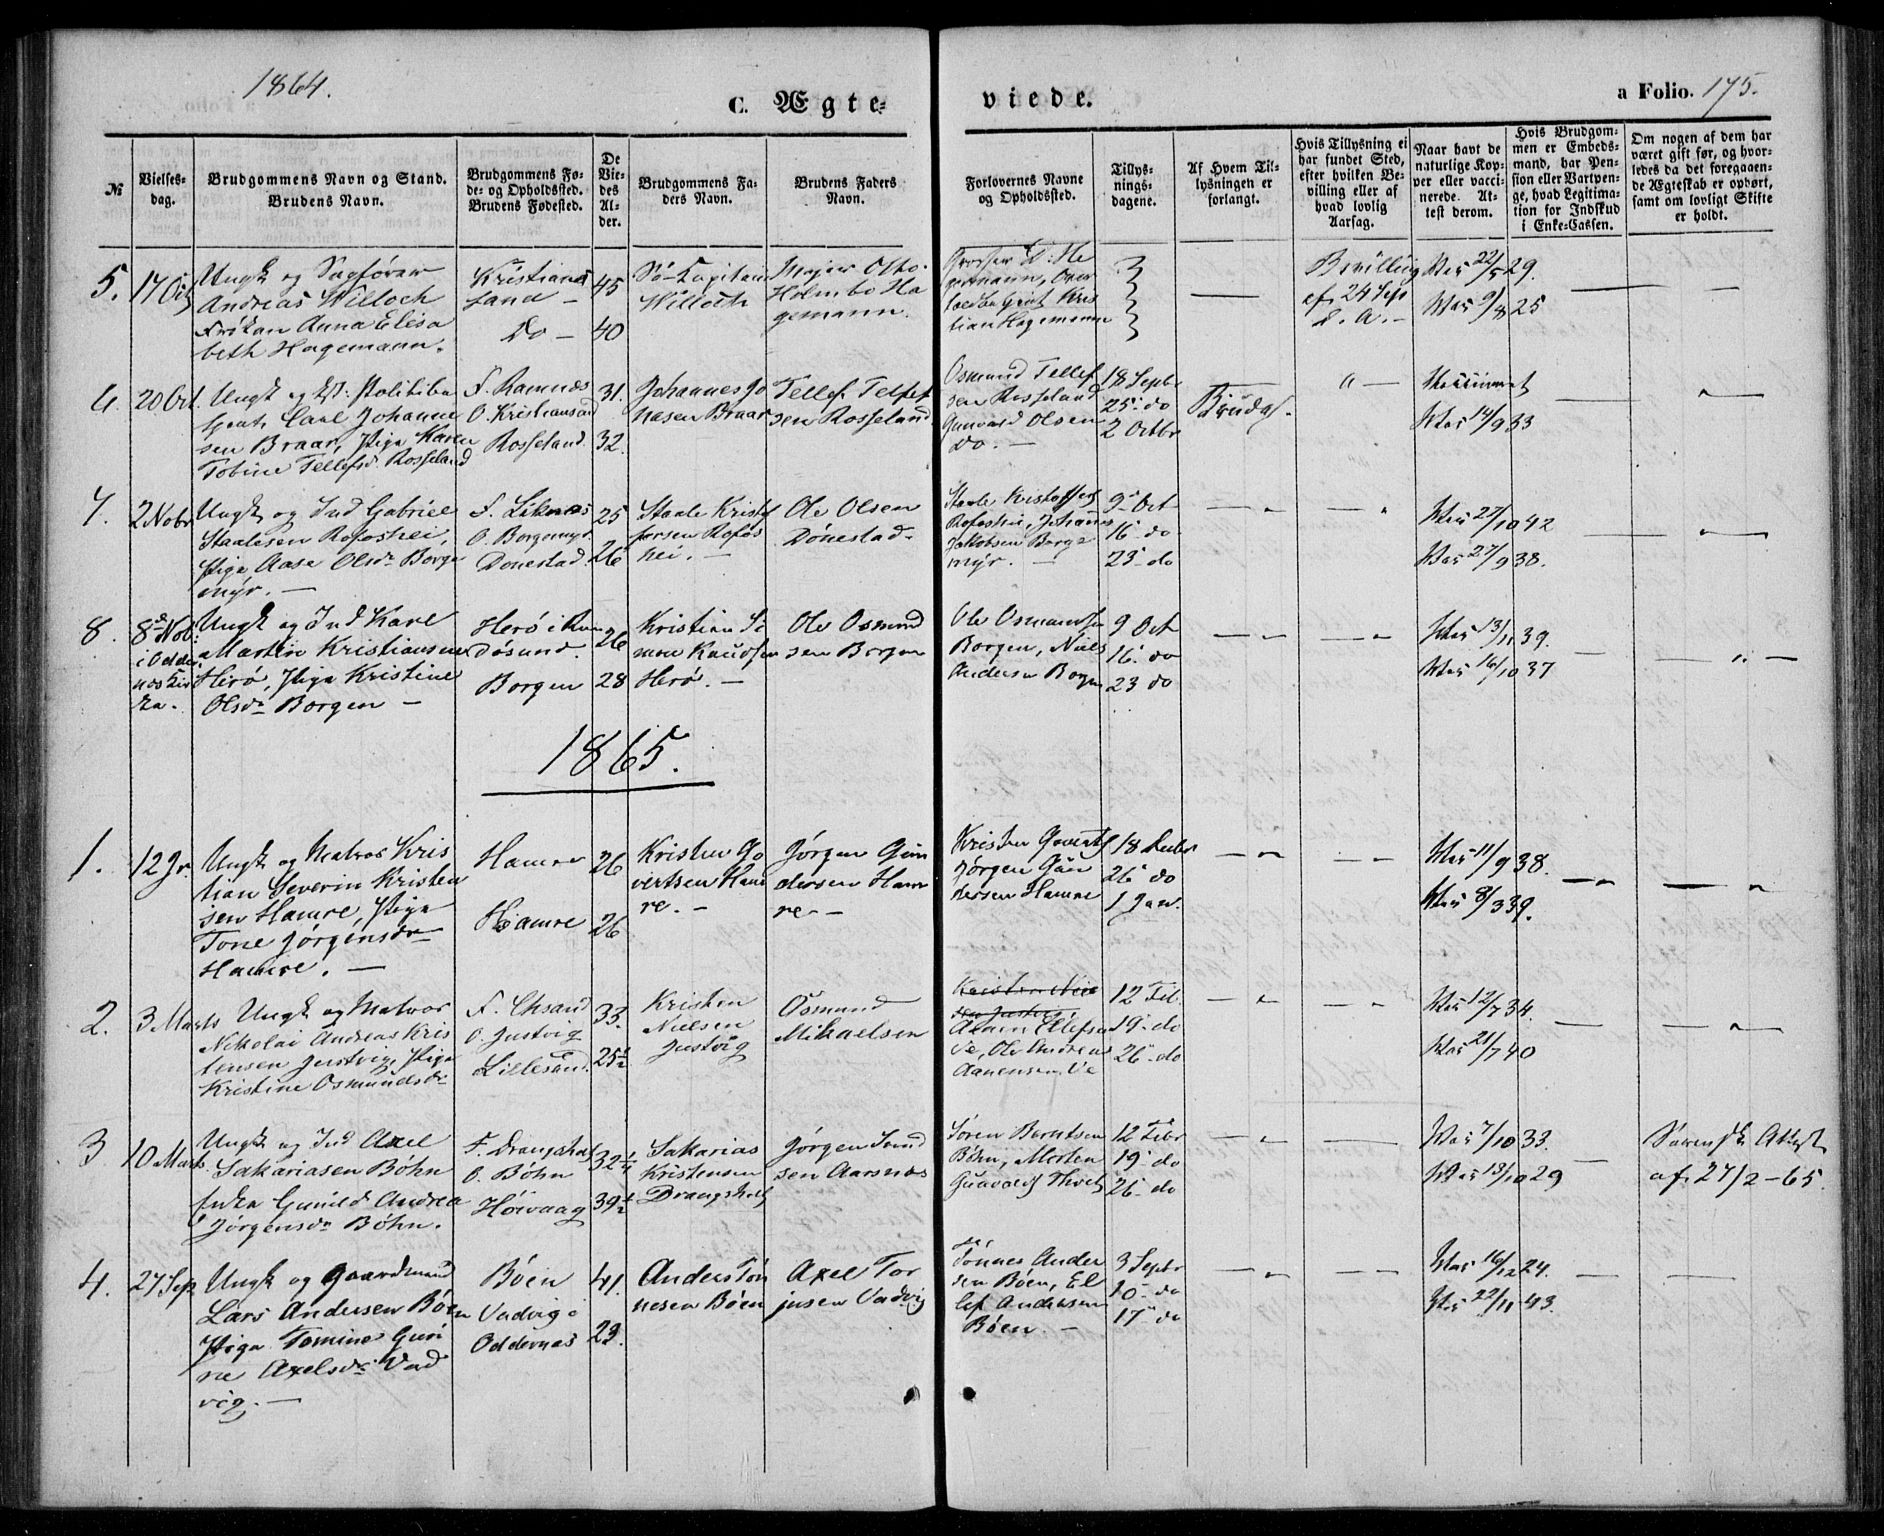 1864.
C. Ægte-
viede.
a Folio. 175.
№
Vielses-
dag.
Brudgommens Navn og Stand.
Brudens Navn.
Brudgommens Fø-
de- og Opholdssted.
Brudens Fødested.
De
Vie-
des
Al-
der.
Brudgommens Fa-
ders Navn.
Brudens Faders
Navn.
Forlovernes Navne
og Opholdssted.
Tillys-
nings-
dagene.
Af Hvem Til-
lysningen er
forlangt.
Hvis Tillysning ei
har fundet Sted,
efter hvilken Be-
villing eller af
hvad lovlig
Aarsag.
Naar havt de
naturlige Kop-
per eller vacci-
nerede. At-
test derom.
Hvis Brudgom-
men er Embeds-
mand, har Pen-
sion eller Vartpen-
ge, hvad Legitima-
tion for Indskud
i Enke-Cassen.
Om nogen af dem har
været gift før, og hvor-
ledes da det foregaaen-
de Ægteskab er ophørt,
samt om lovligt Skifte
er holdt.
5.
17 Oct
Ungk og Sagfører
Andreas Willoch
Frøken Anna Elisa
beth Hagemann.
Kristians
sand —
Do —
45
40
Sö-Capitain
Willoch
Major Otto
Holmbo Ha
gemann.
germann, Over
tian Hagemann
—
Bevilling
af 24 Sep
d. A. —
Vac 22/5 29.
Vac 9/8 25
—
—
6.
20 Oct.
Ungk og Politibe
tjent Carl Johanne
sen Braar, Pige Karen
Tobine Tellefsd. Rosseland
F. Ramnæs
O. Kristiansand
Rosseland
31.
32.
Johannes Jo
nasen Braar
Tellef Tellef
sen Rosseland
Osmund Tellef
sen Rosseland
Gunvald Olsen
do. —
18 Septr
25 do
2 Octbr
Brudg.
"
Vaccineret
Vac 14/9 33
7.
2 Nobr
Ungk og Ind Gabriel
Staalesen Rofoshei,
Pige Aase Olsdr Borge
myr. —
F. Liknes
O. Borgemyr
Dönestad
25
26
Staale Kristof
fersen Rofos
hei. —
Ole Olsen
Dönestad
Staale Kristoffers
Rofoshei, Johannes
Jakobsen Borge
myr. —
9 Oct
16 do
23 do
Vac 27/10 42
Vac 27/9 38.
8.
8de Nob.
i Odder
næs Kir
ke.
Ungk og Ind Karl
Martin Kristiansen
Herö, Pige Kristine
Olsdr Borgen —
Herö i Ran
dösund.
Borgen
26
28
Kristian Si
mon Knudsen
Herö. —
Ole Osmund
sen Borgen
Ole Osmundsen
Borgen, Niels
Andersen Borgen
9 Oct
16 do
23 do
Vac 13/11 39.
Vac 16/10 37
— " —
1865.
1.
12 Jr.
Ungk og Matros Kris
tian Severin Kristen
sen Hamre, Pige
Tone Jörgensdr
Hamre. —
Hamre
Hamre
26
26
Kristen Go
vertsen Ham
re. —
Jørgen Gun
dersen Ham
re —
Kristen Govertsf
Jørgen Gun
dersen Hamre
18 Decbr
26 do
1 Jan.
Vac 11/9 38.
Vac 8/3 39.
2.
3 Marts
Ungk og Matros
Nikolai Andreas Kris
tensen Justvig, Pige
Kristine Osmundsdr
F. Chsand
O. Justvig
Lillesand
33.
25½
Kristen
Nielsen
Justvig
Osmund
Mikaelsen
Ellefsen
Ve, Ole Andreas
Aanensen Ve
12 Feb.
19 do
26 do
Vac 12/7 34.
Vac 21/7 40
3
10 Marts
Ungk og Ind Axel
Sakariasen Böhn
Enke Gunild Andrea
Jørgensdr Böhn.
F. Drangsholt
O. Böhn
Höivaag
32¼
39½
Sakarias
Kristensen
Drangsholt
Jørgen Svend
sen Aarsnæs
Sören Berntsen
Böhn, Morten
Gunvalds Tveit
12 Febr
19 do
26 do
Vac 7/10 33.
Vac 13/10 29
Attest
af 27/2 - 65.
4.
27 Sep
Ungk og Gaardmand
Lars Andersen Böen
Pige Tomine Guri
ne Axelsdr Vad
vig. —
Böen
Vadvig i
Oddernæs
41.
23.
Anders Tön
nesen Böen
Axel Tor
jusen Vadvig
Tönnes Ander
sen Böen, El
lef Andersen
Böen. —
3 Septr
10 do
17 do
Vac 16/12 24.
Vac 22/11 43.